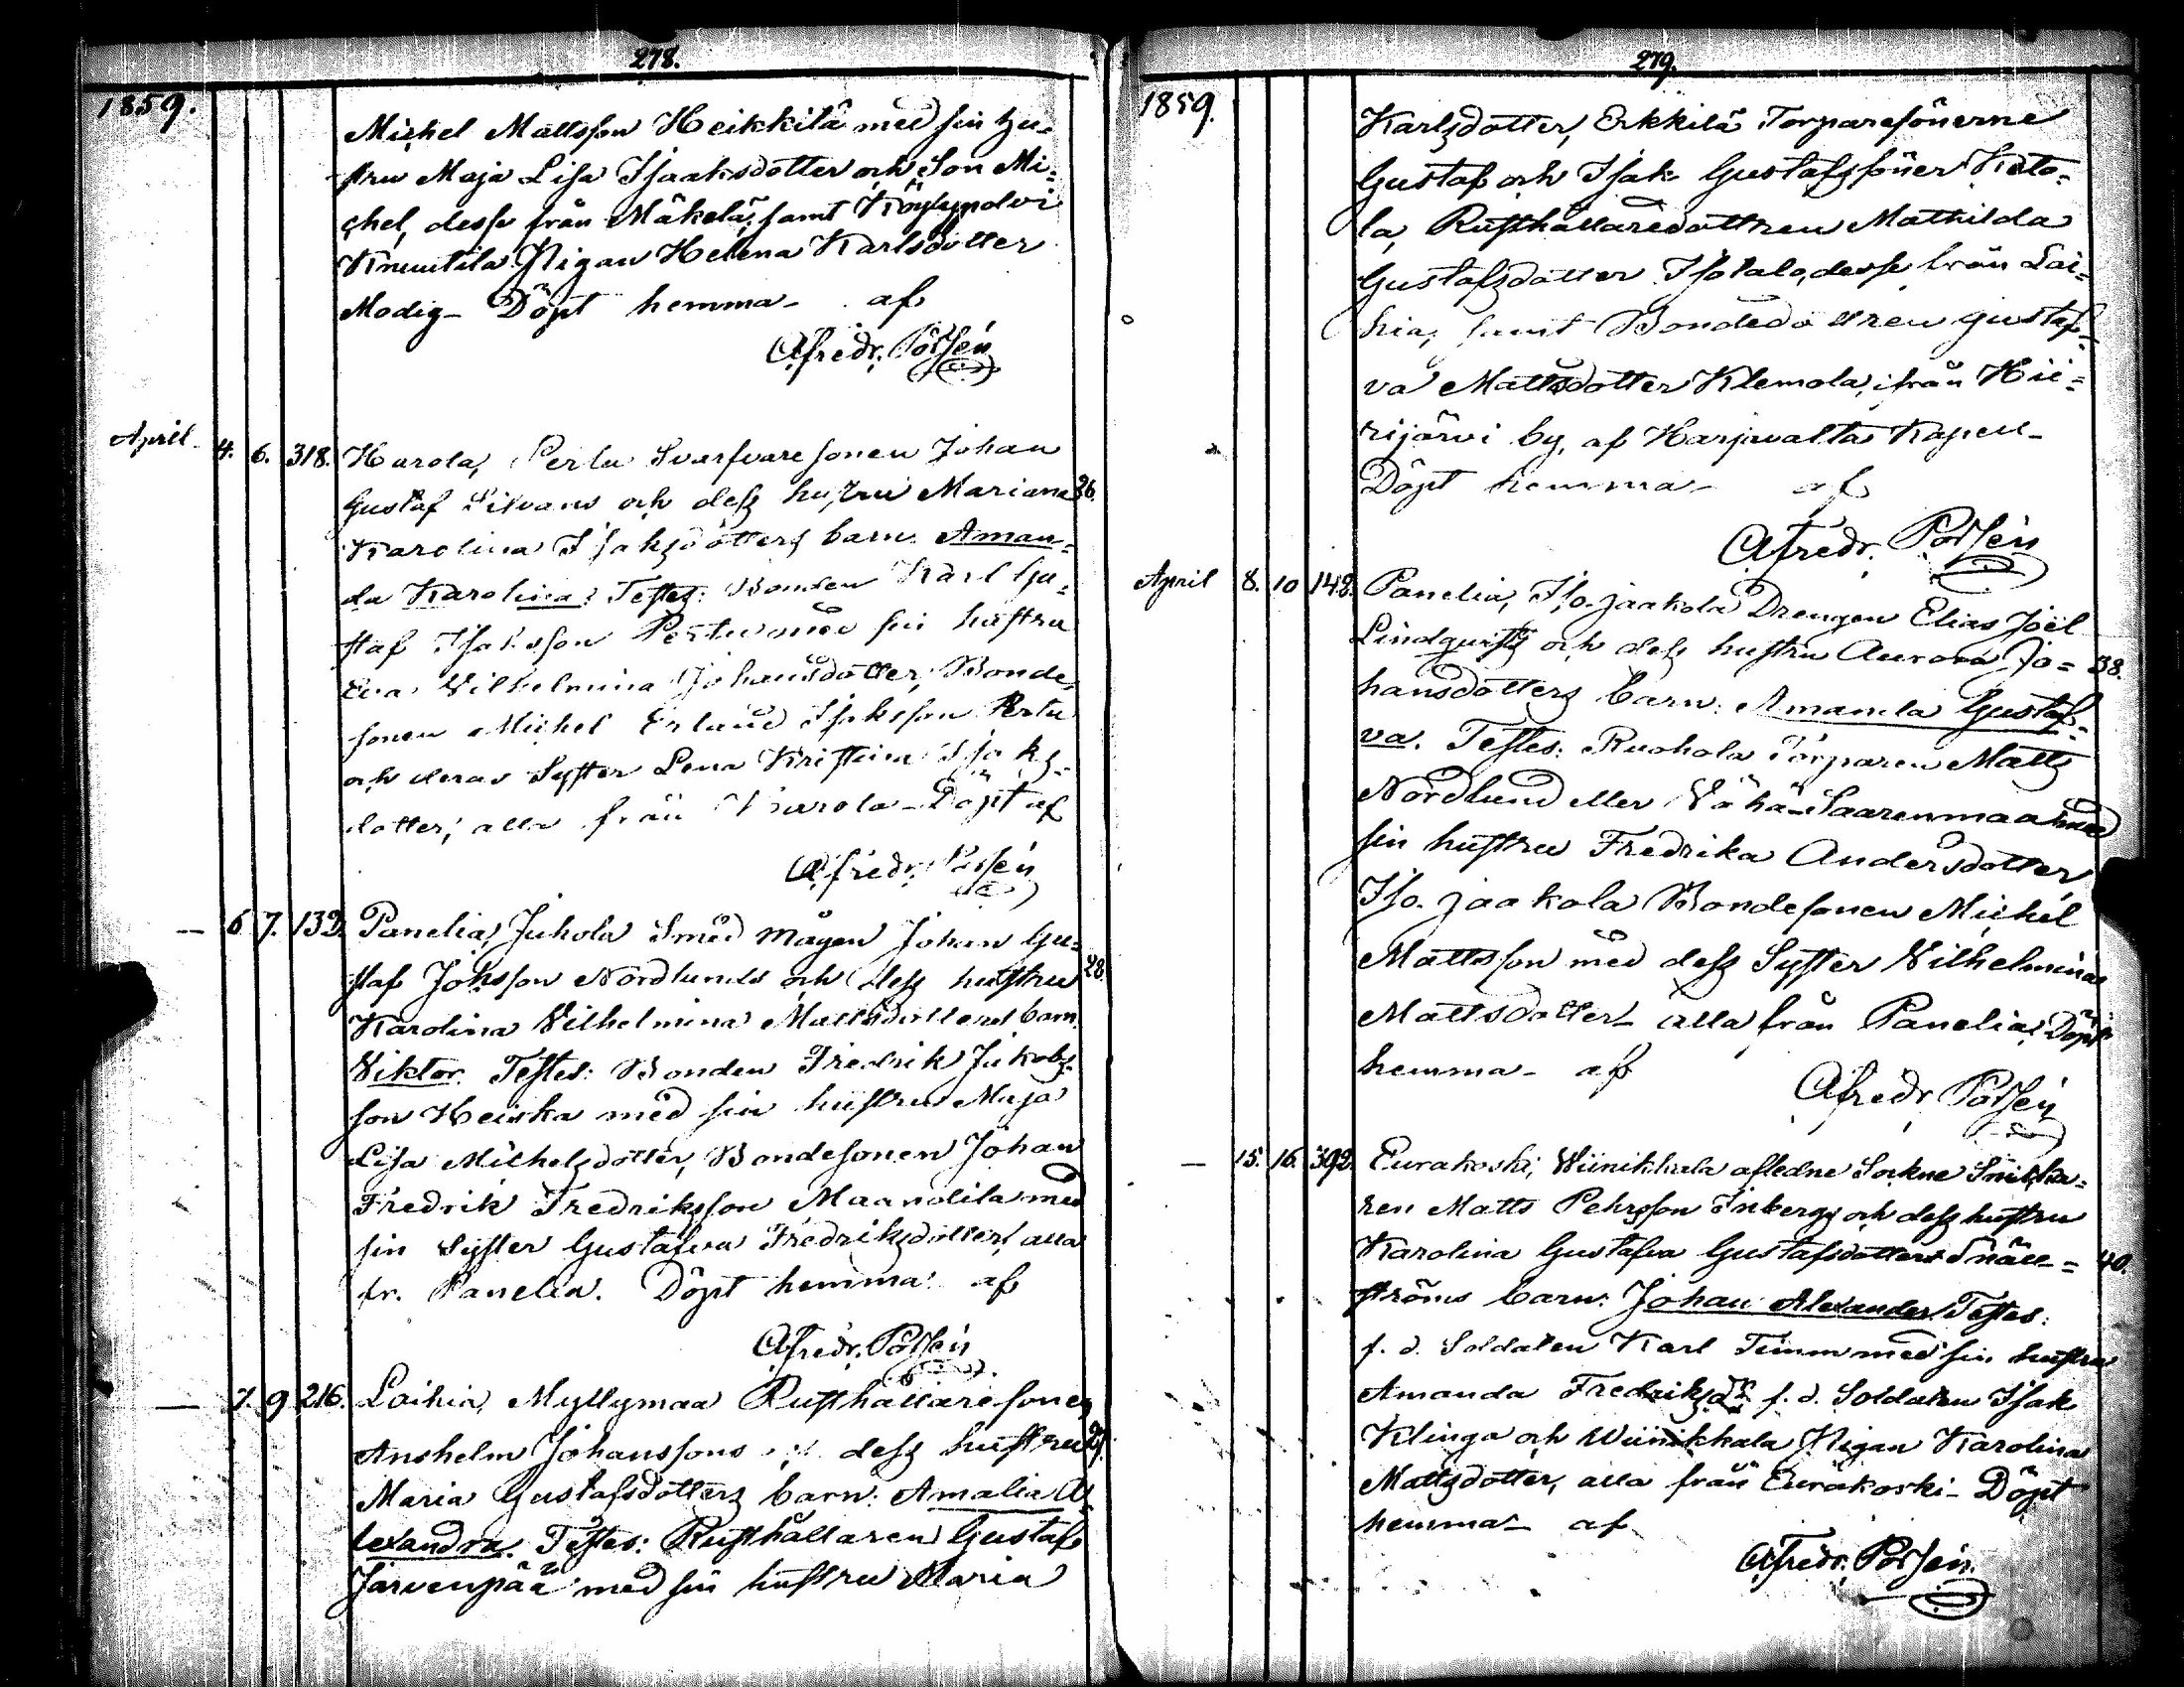 278.
1859.
Michel Mattsson Heikkilä med sin hu=
stru Maja Lisa Isaaksdotter och Son Mi=
chel, desse från Mäkelä, samt Köylypolvi
Knuutila Pigan Helena Karlsdotter
Modig - Döpt hemma - af
Afredr. Porsén
April 4. 6. 318. Harola, Pertu Svarfvaresonen Johan
Gustaf Silvans och dess hustru Mariana 36.
Karolina Isaksdotters barn: Aman=
da Karolina: Testes: Bonden Karl Gu=
staf Isaksson Pertu med sin hustru
Eva Vilhelmina Johansdotter, Bonde=
sonen Michel Erland Isaksson Pertu
och deras Syster Lena Kristina Isaks=
dotter, alla från Harola - Döpt af
Afredr. Porsén
— 6 7. 132. Panelia, Juhola Smed mågen Johan Gu=
staf Johsson Nordlunds och dess hustru 28.
Karolina Vilhelmina Mattsdotters barn
Viktor. Testes: Bonden Fredrik Jakobs=
son Heiska med sin hustru Maja
Lisa Michelsdotter, Bondesonen Johan
Fredrik Fredriksson Maanolila med
sin Syster Gustafva Fredriksdotter, alla
fr. Panelia. Döpt hemma af
Afredr. Porsén
— 7. 9 216. Laihia, Myllymaa Rusthållaresonen
Anshelm Johanssons och dess hustru 27.
Maria Gustafsdotters barn: Amalia A=
lexandra. Testes: Rusthållaren Gustaf
Järvenpää med sin hustru Maria
279.
1859.
Karlsdotter, Erkkilä Torparesönerne
Gustaf och Isak Gustafssöner Keto=
la, Rusthållaredottren Mathilda
Gustafsdotter Isotalo, desse från Lai=
hia, samt Bondedottren Gustaf=
va Mattsdotter Klemola, ifrån Hii=
rijärvi by, af Harjavalta Kapell -
Döpt hemma - af
Afredr. Porsén
April 8. 10 148. Panelia, Iso-jaakola Drengen Elias Joël
Lindqvists och dess hustru Aurora Jo= 38.
hansdotters barn: Amanda Gustaf=
va. Testes: Ruohola Torparen Matts
Nordlund eller Vähä-Saarenmaa med
sin hustru Fredrika Andersdotter
Iso-jaakola Bondesonen Michel
Mattsson med dess Syster Vilhelmina
Mattsdotter - alla från Panelia, Döpt
hemma - af
Afredr Porsén
— 15. 16. 392. Eurakoski, Wiinikkala afledne Sockne Snicka=
ren Matts Pehrsson Inbergs och dess hustru
Karolina Gustafva Gustafsdotters Snäll= 40.
ströms barn: Johan Alexander Testes:
f. d. Soldaten Karl Timm med sin hustru
Amanda Fredriksdr. f. d. Soldaten Isak
Klinga och Wiinikkala Pigan Karolina
Mattsdotter, alla från Eurakoski - Döpt
hemma - af
Afredr. Porsén.